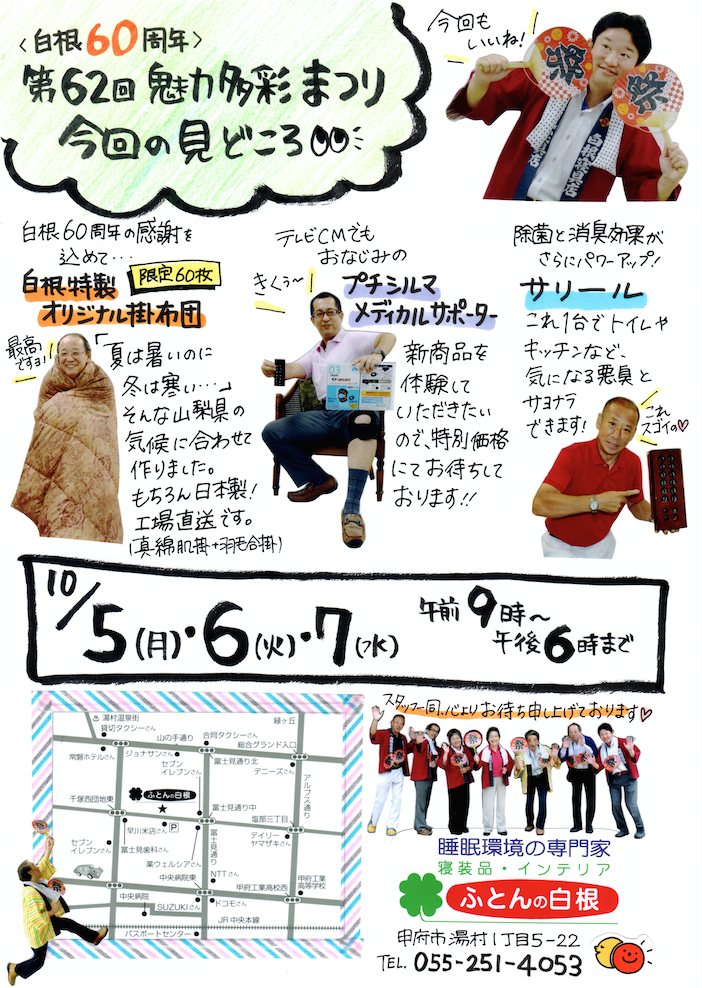 〈白根60周年〉
第62回 魅力多彩 まつり
今回の見どころ
今回も
いいね!
祭
祭
白根寝具店
白根60周年の感謝を
込めて・・・
限定60枚
白根特製
オリジナル掛布団
最高ですヨ!
「夏は暑いのに
冬は寒い・・・」
そんな山梨県の
気候に合わせて
作りました。
もちろん日本製!
工場直送です。
(真綿肌掛+羽毛合掛)
テレビCMでも
おなじみの
きくぅ〜!
プチシルマ
メディカルサポーター
新商品を
体験して
いただきたい
ので、特別価格
にてお待ちして
おります!!
除菌と消臭効果が
さらにパワーアップ!
サリール
これ1台でトイレや
キッチンなど、
気になる悪臭と
サヨナラ
できます!
これ
スゴイの♡
10/5(月)・6(火)・7(水)
午前9時〜
午後6時まで
湯村温泉街
貸切タクシーさん
緑ヶ丘
山の手通り
合同タクシーさん
総合グランド入口
常磐ホテルさん
ジョナサンさん
富士見通り北
デニーズさん
セブン
イレブンさん
アルプス通り
ふとんの白根
千塚西団地東
富士見通り中
早川米店さん
P
塩部三丁目
セブン
イレブンさん
富士見歯科さん
富士見通り
デイリー
ヤマザキさん
薬ウェルシアさん
中央病院東
NTTさん
甲府工業高校西
甲府工業
高等学校
中央病院
SUZUKIさん
ドコモさん
JR中央本線
パスポートセンター
スタッフ一同、心よりお待ち申し上げております♡
睡眠環境の専門家
寝装品・インテリア
ふとんの白根
甲府市湯村1丁目5-22
TEL. 055-251-4053